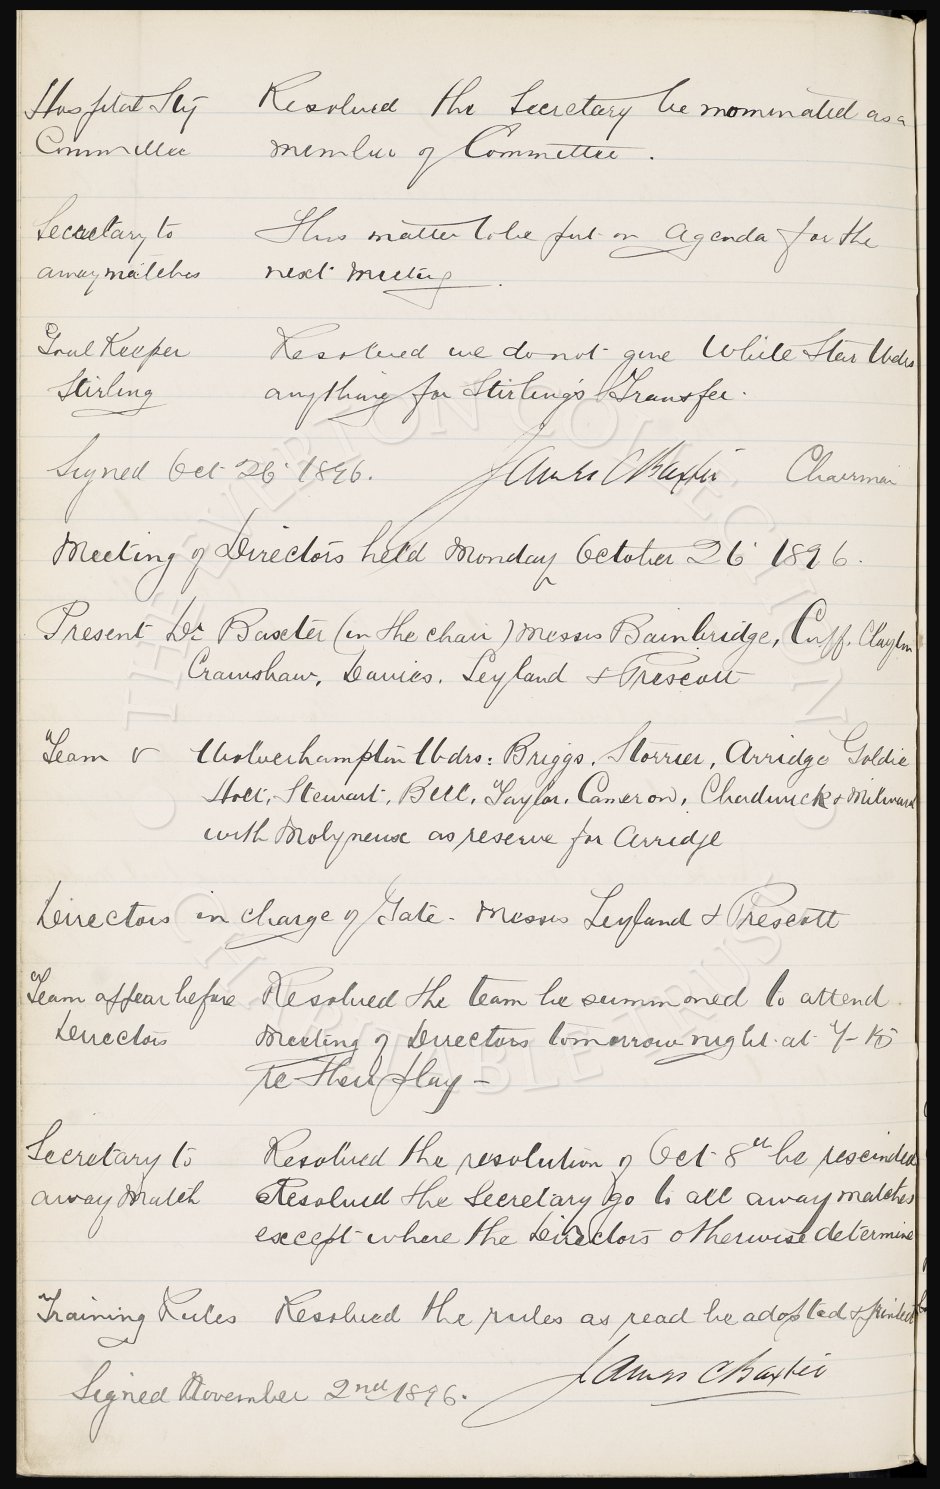 Hospital Sty Resolved the Secretary be nominated as a
Committee member of Committee.
Secretary to This matter to be put on Agenda for the
away matches next meeting.
Goal Keeper Resolved we do not give White Star Wdrs
Stirling anything for Stirling's Transfer.
Signed Oct 26 1896. James C Baxter Chairman
Meeting of Directors held Monday October 26 1896.
Present Dr Baxter (in the chair) Messrs Bainbridge, Cuff, Clayton
Crawshaw, Davies, Leyland & Prescott
Team v Wolverhampton Wdrs: Briggs, Storrier, Arridge Goldie
Holt, Stewart, Bell, Taylor, Cameron, Chadwick & Milward
with Molyneux as reserve for Arridge
Directors in charge of Gate - Messrs Leyland & Prescott
Team appear before Resolved the team be summoned to attend
Directors Meeting of Directors tomorrow night at 7-15
re their play -
Secretary to Resolved the resolution of Oct 8th be rescinded
away Match Resolved the Secretary go to all away matches
except where the Directors otherwise determine
Training Rules Resolved the rules as read be adopted & printed
Signed November 2nd 1896. James C Baxter
THE EVERTON COLLECTION
CHARITABLE TRUST